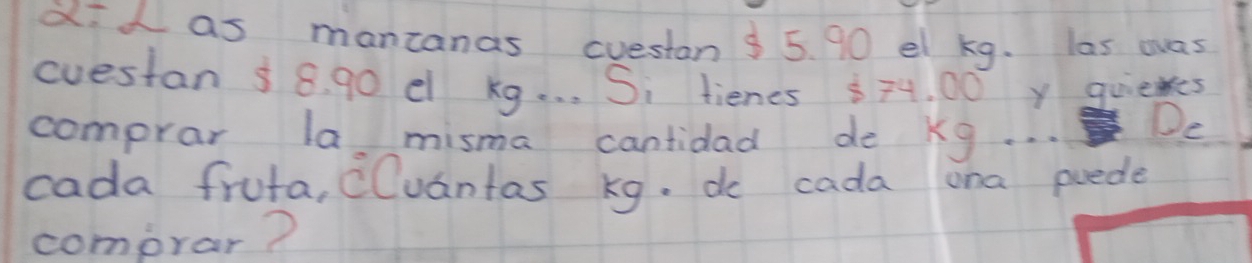 2-Las manzanas cuestan $5.90 el kg. las uvas
cuestan $8.90 el kg... Si tienes $74.00 y quieres
comprar la misma cantidad de kg... De
cada fruta, ¿Cuántas kg. de cada una puede
comprar?